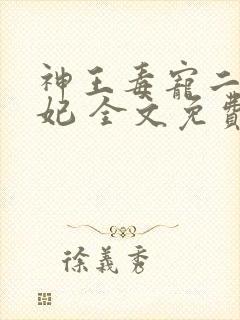 神王毒寵二
妃 全文免費
徐義秀